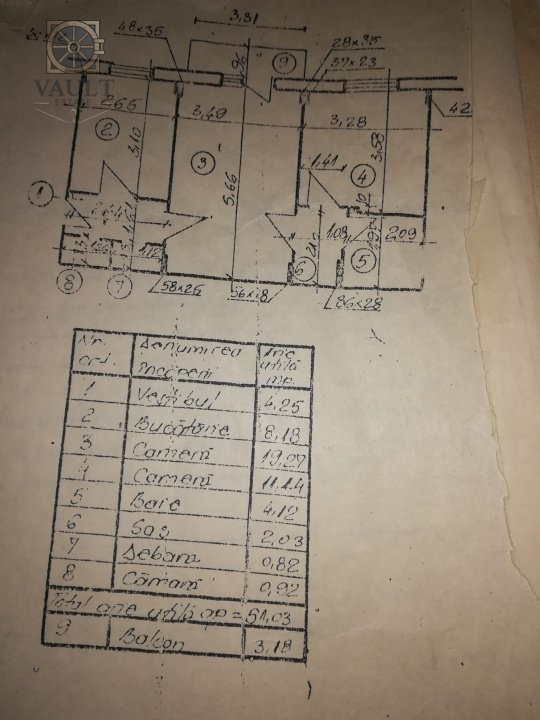 VAULT
3,31
48x35
28x35
37x23
2,65
3,49
3,28
42
2
3,10
3
5,66
9
1,41
4
3,58
1
1,08
2,09
5
6
8
7
58x25
56x18
86x28
Nr. crt. Denumirea încăperii Arie utilă mp.
1 Vestibul 4,25
2 Bucătarie 8,18
3 Cameră 19,27
4 Cameră 11,14
5 Baie 4,12
6 Sas 2,03
7 Debara 0,82
8 Cămară 0,92
Total arie utilă ap = 51,03
9 Balcon 3,18